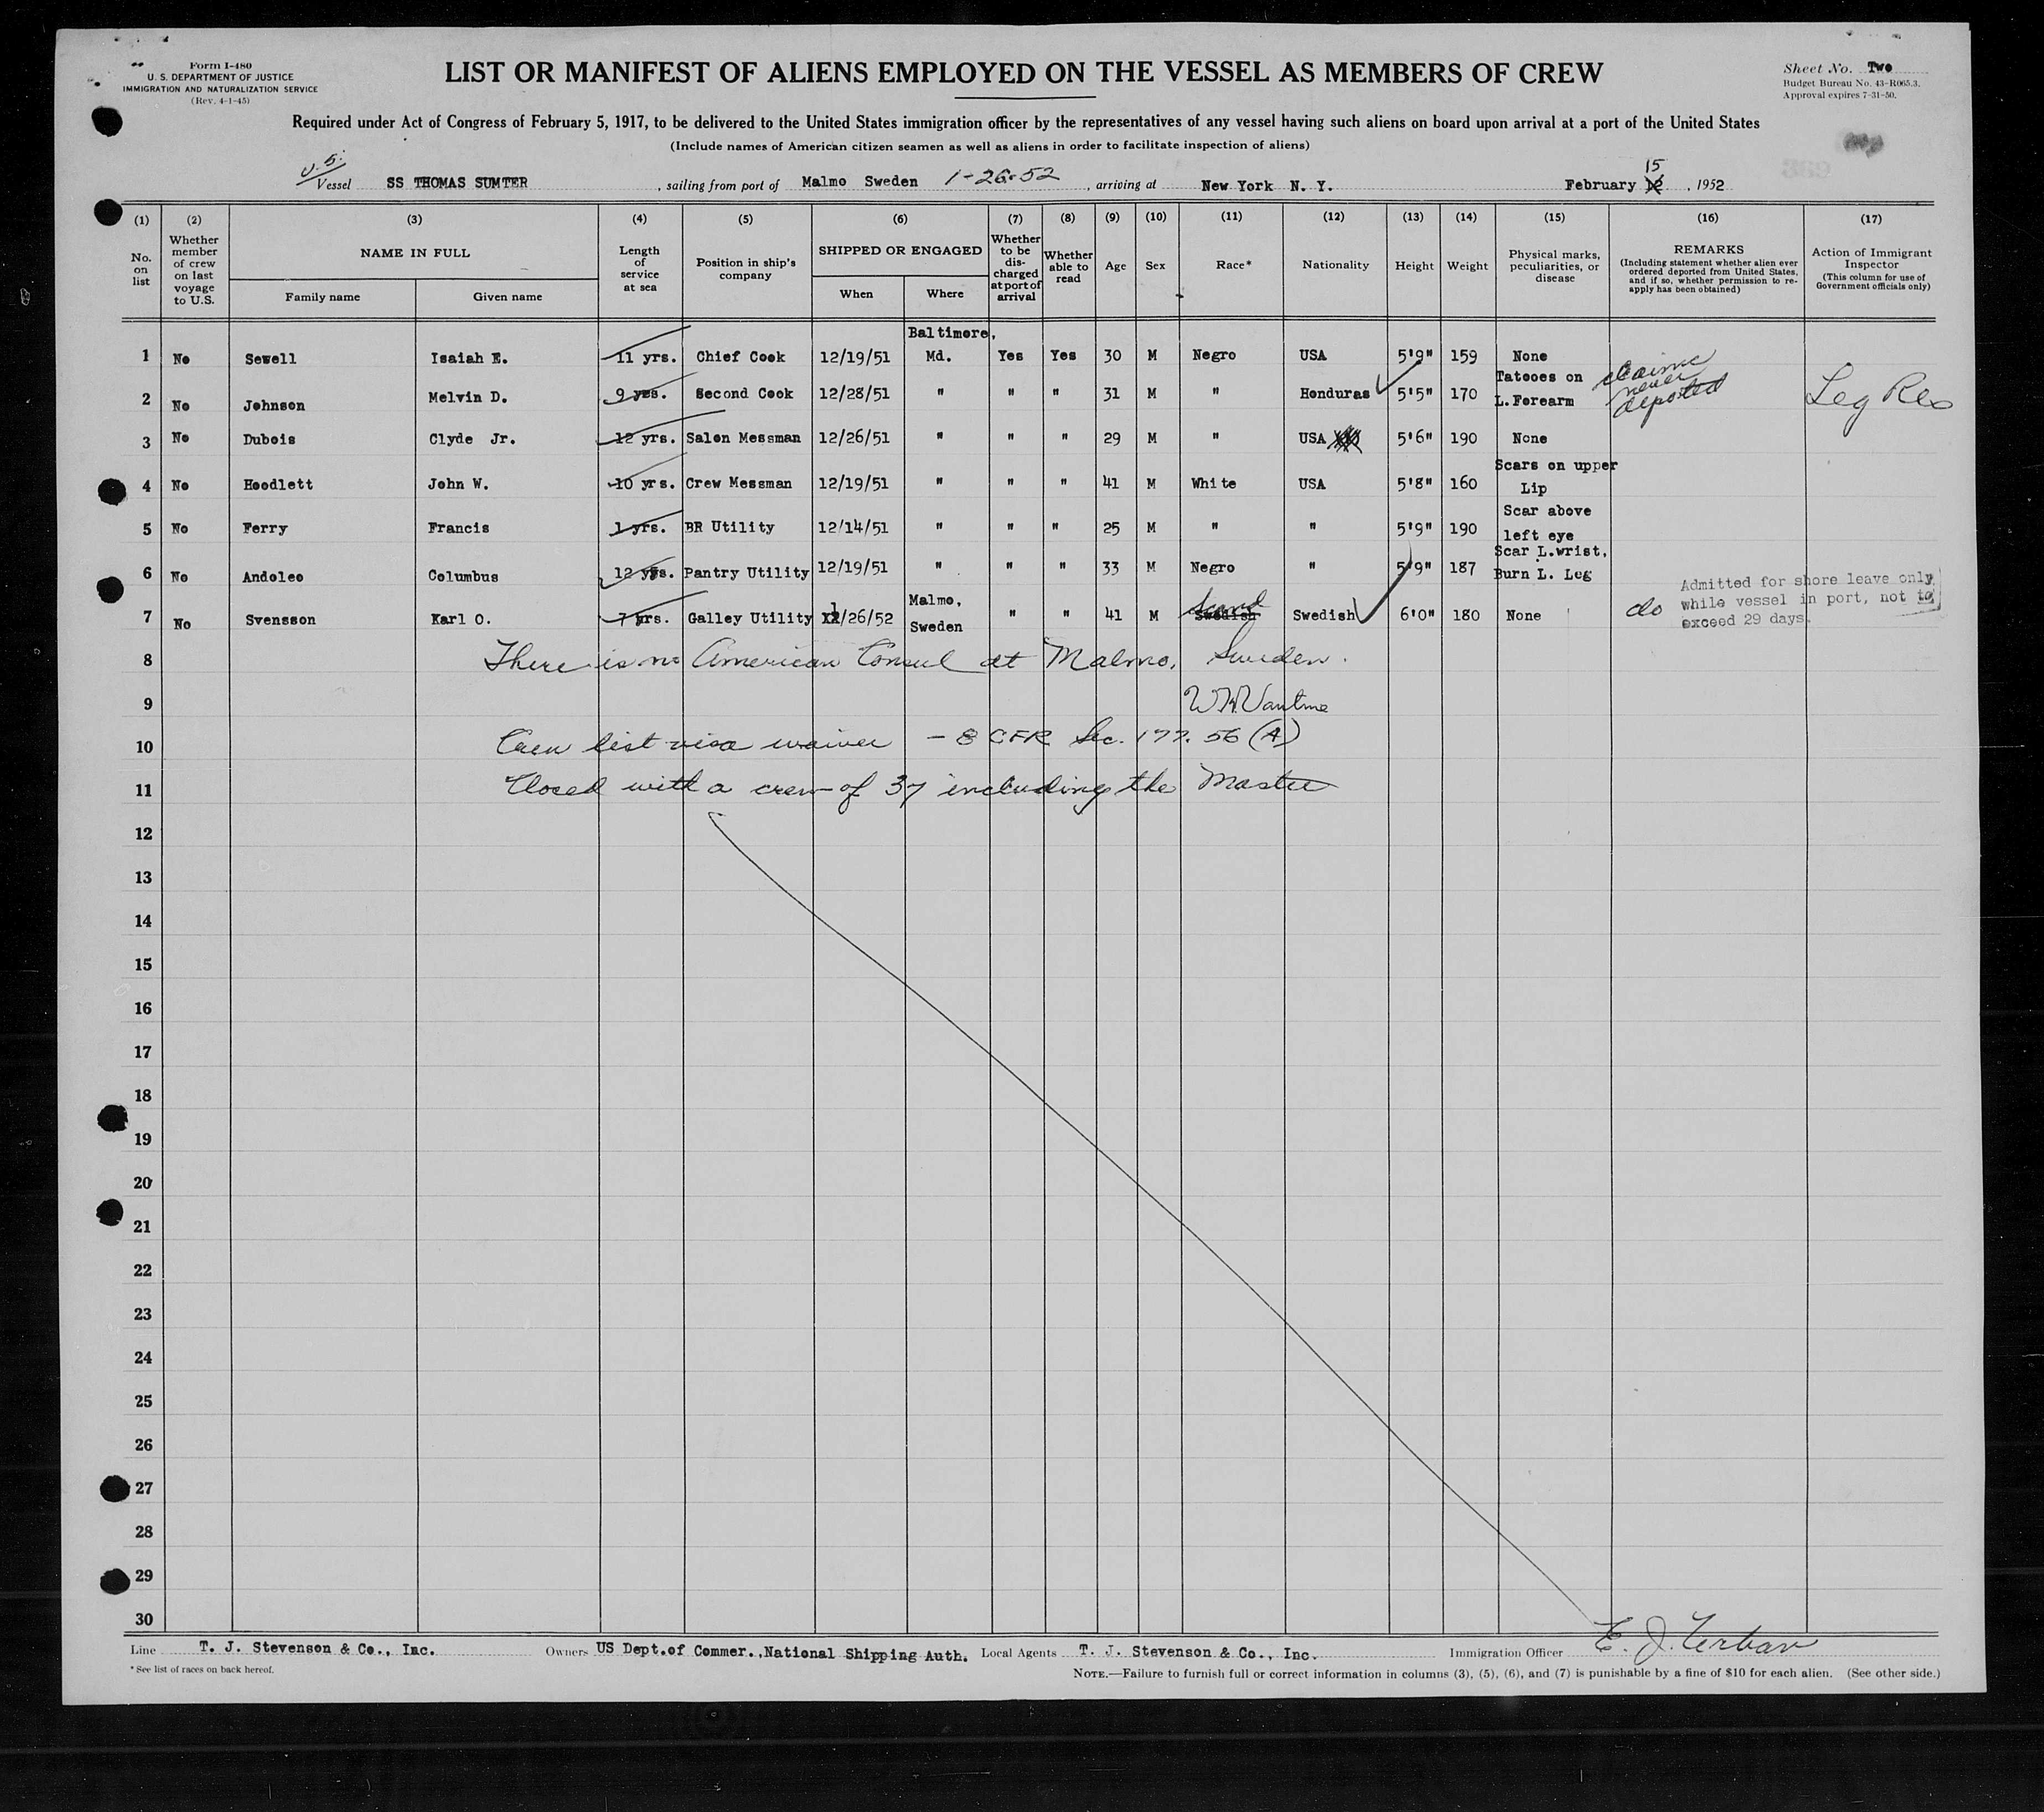 Form I-480
U. S. DEPARTMENT OF JUSTICE
IMMIGRATION AND NATURALIZATION SERVICE
(Rev. 4-1-45)
LIST OR MANIFEST OF ALIENS EMPLOYED ON THE VESSEL AS MEMBERS OF CREW
Sheet No. Two
Budget Bureau No. 43-R065.3.
Approval expires 7-31-50.
Required under Act of Congress of February 5, 1917, to be delivered to the United States immigration officer by the representatives of any vessel having such aliens on board upon arrival at a port of the United States
(Include names of American citizen seamen as well as aliens in order to facilitate inspection of aliens)
U.S. Vessel SS THOMAS SUMTER , sailing from port of Malmo Sweden 1-26-52 , arriving at New York N. Y. February 15 12 , 1952
(1) (2) (3) (4) (5) (6) (7) (8) (9) (10) (11) (12) (13) (14) (15) (16) (17)
No. on list
Whether member of crew on last voyage to U.S.
NAME IN FULL
Family name
Given name
Length of service at sea
Position in ship's company
SHIPPED OR ENGAGED
When
Where
Whether to be discharged at port of arrival
Whether able to read
Age
Sex
Race*
Nationality
Height
Weight
Physical marks, peculiarities, or disease
REMARKS
(Including statement whether alien ever ordered deported from United States, and if so, whether permission to re-apply has been obtained)
Action of Immigrant Inspector
(This column for use of Government officials only)
1 No Sewell Isaiah E. 11 yrs. Chief Cook 12/19/51 Baltimore, Md. Yes Yes 30 M Negro USA 5'9" 159 None
2 No Johnson Melvin D. 9 yrs. Second Cook 12/28/51 " " " 31 M " Honduras 5'5" 170 Tatooes on L.Forearm claims never deported Leg Res
3 No Dubois Clyde Jr. 12 yrs. Salon Messman 12/26/51 " " " 29 M " USA 5'6" 190 None
4 No Hoodlett John W. 10 yrs. Crew Messman 12/19/51 " " " 41 M White USA 5'8" 160 Scars on upper Lip
5 No Ferry Francis 1 yrs. BR Utility 12/14/51 " " " 25 M " " 5'9" 190 Scar above left eye
6 No Andoleo Columbus 12 yrs. Pantry Utility 12/19/51 " " " 33 M Negro " 5'9" 187 Scar L.wrist, Burn L. Leg
7 No Svensson Karl O. 7 yrs. Galley Utility 1/26/52 Malmo, Sweden " " 41 M Scand Swedish Swedish 6'0" 180 None do Admitted for shore leave only while vessel in port, not to exceed 29 days.
8 There is no American Consul at Malmo, Sweden.
9
10 Crew list visa waiver - 8 CFR Sec. 177.56 (A)
11 Closed with a crew of 37 including the Master
12
13
14
15
16
17
18
19
20
21
22
23
24
25
26
27
28
29
30
Line T. J. Stevenson & Co., Inc. Owners US Dept.of Commer.,National Shipping Auth. Local Agents T. J. Stevenson & Co., Inc. Immigration Officer E. J. Urban
* See list of races on back hereof.
NOTE.—Failure to furnish full or correct information in columns (3), (5), (6), and (7) is punishable by a fine of $10 for each alien. (See other side.)